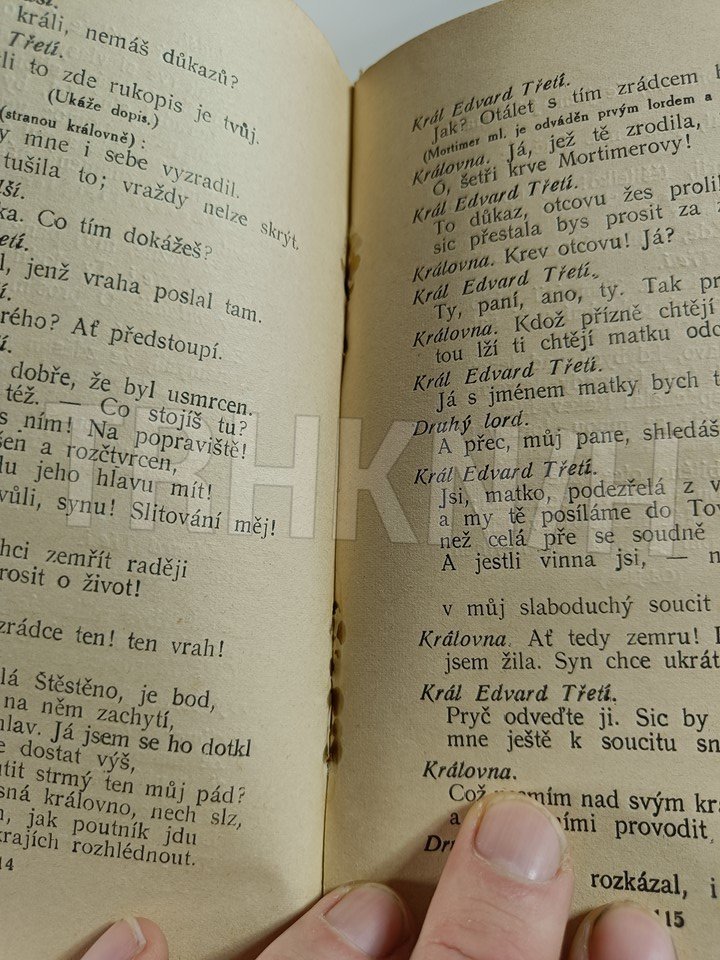 králi, nemáš důkazů?
Třetí.
to zde rukopis je tvůj.
(Ukáže dopis.)
(stranou královně):
mne i sebe vyzradil.
tušila to; vraždy nelze skrýt.
Co tím dokážeš?
jenž vraha poslal tam.
Ať předstoupí.
dobře, že byl usmrcen.
též. — Co stojíš tu?
s ním! Na popraviště!
a rozčtvrcen,
jeho hlavu mít!
synu! Slitování měj!
chci zemřít raději
o život!
zrádce ten! ten vrah!
Štěstěno, je bod,
na něm zachytí,
hlav. Já jsem se ho dotkl
dostat výš,
strmý ten můj pád?
královno, nech slz,
jak poutník jdu
krajích rozhlédnout.
Král Edvard Třetí.
Jak? Otálet s tím zrádcem
(Mortimer ml. je odváděn prvým lordem a
Královna. Já, jež tě zrodila,
Ó, šetři krve Mortimerovy!
Král Edvard Třetí.
To důkaz, otcovu žes
sic přestala bys prosit za
Královna. Krev otcovu! Já?
Král Edvard Třetí.
Ty, paní, ano, ty. Tak
Královna. Kdož přízně chtějí
tou lží ti chtějí matku
Král Edvard Třetí.
Já s jménem matky bych
Druhý lord.
A přec, můj pane, shledáš
Král Edvard Třetí.
Jsi, matko, podezřelá z
a my tě posíláme do
než celá pře se soudně
A jestli vinna jsi, —
v můj slaboduchý soucit
Královna. Ať tedy zemru!
jsem žila. Syn chce
Král Edvard Třetí.
Pryč odveďte ji. Sic by
mne ještě k soucitu
Královna.
Což nad svým
a provodit,
rozkázal, i
115
TRHKNIH